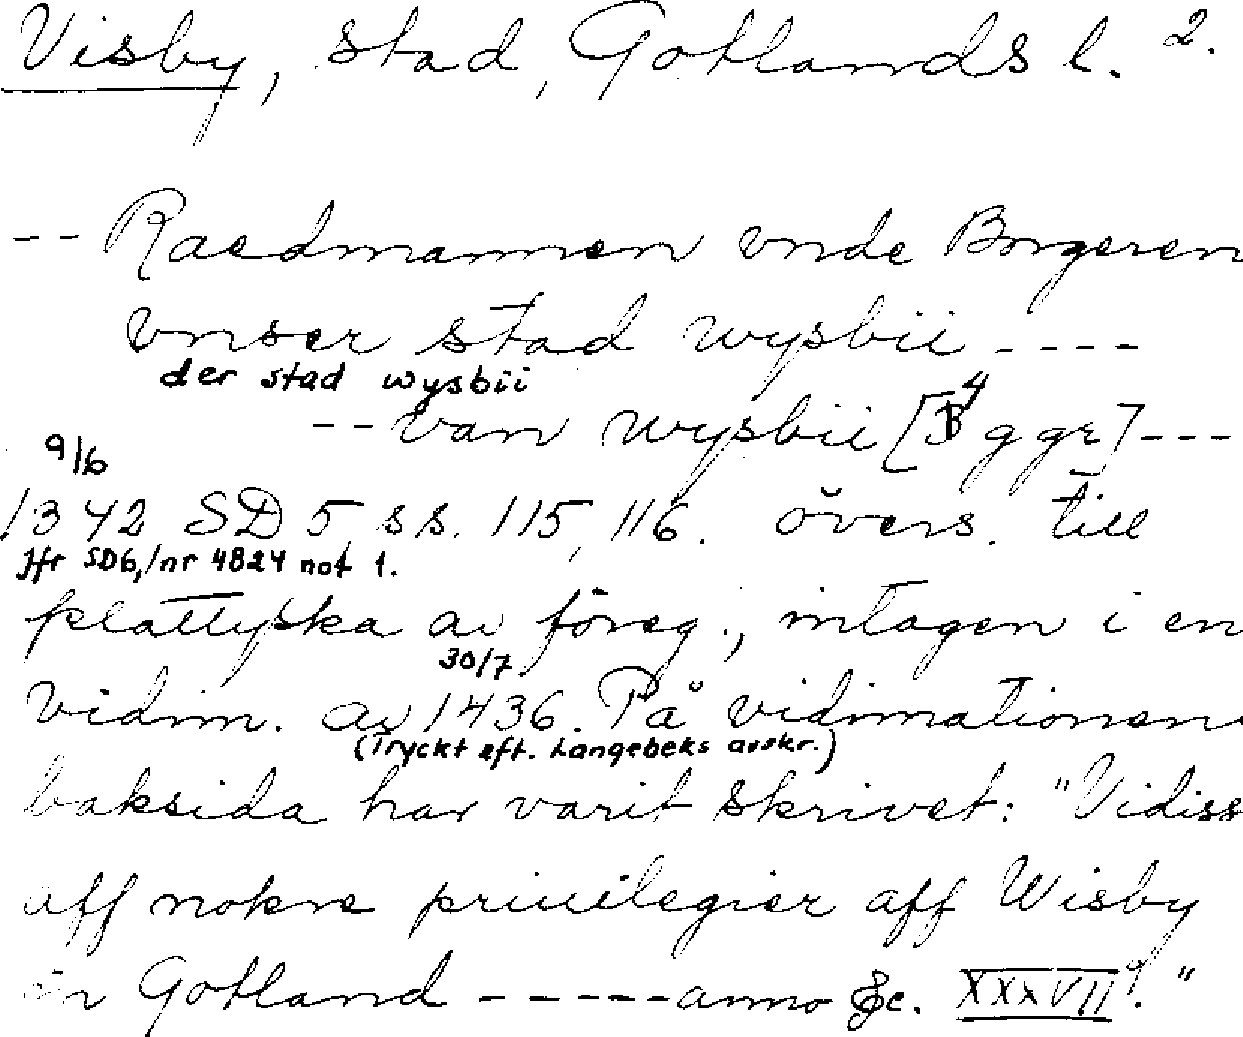 Visby, stad, Gotlands l. 2.
-- Raedmannen vnde Borgeren
vnser stad wysbii ----
der stad wysbii
-- van wysbii [4 ggr] ---
9/6
1342 SD 5 ss. 115, 116. övers. till
Jfr SD6, nr 4824 not 1.
plattyska av föreg., intagen i en
30/7
vidim. av 1436. På vidimationens
(Tryckt eft. Langebeks avskr.)
baksida har varit skrivet: "Vidiss
aff nokre priuilegier aff Wisby
in Gotland ----- anno &c. XXXVII°."